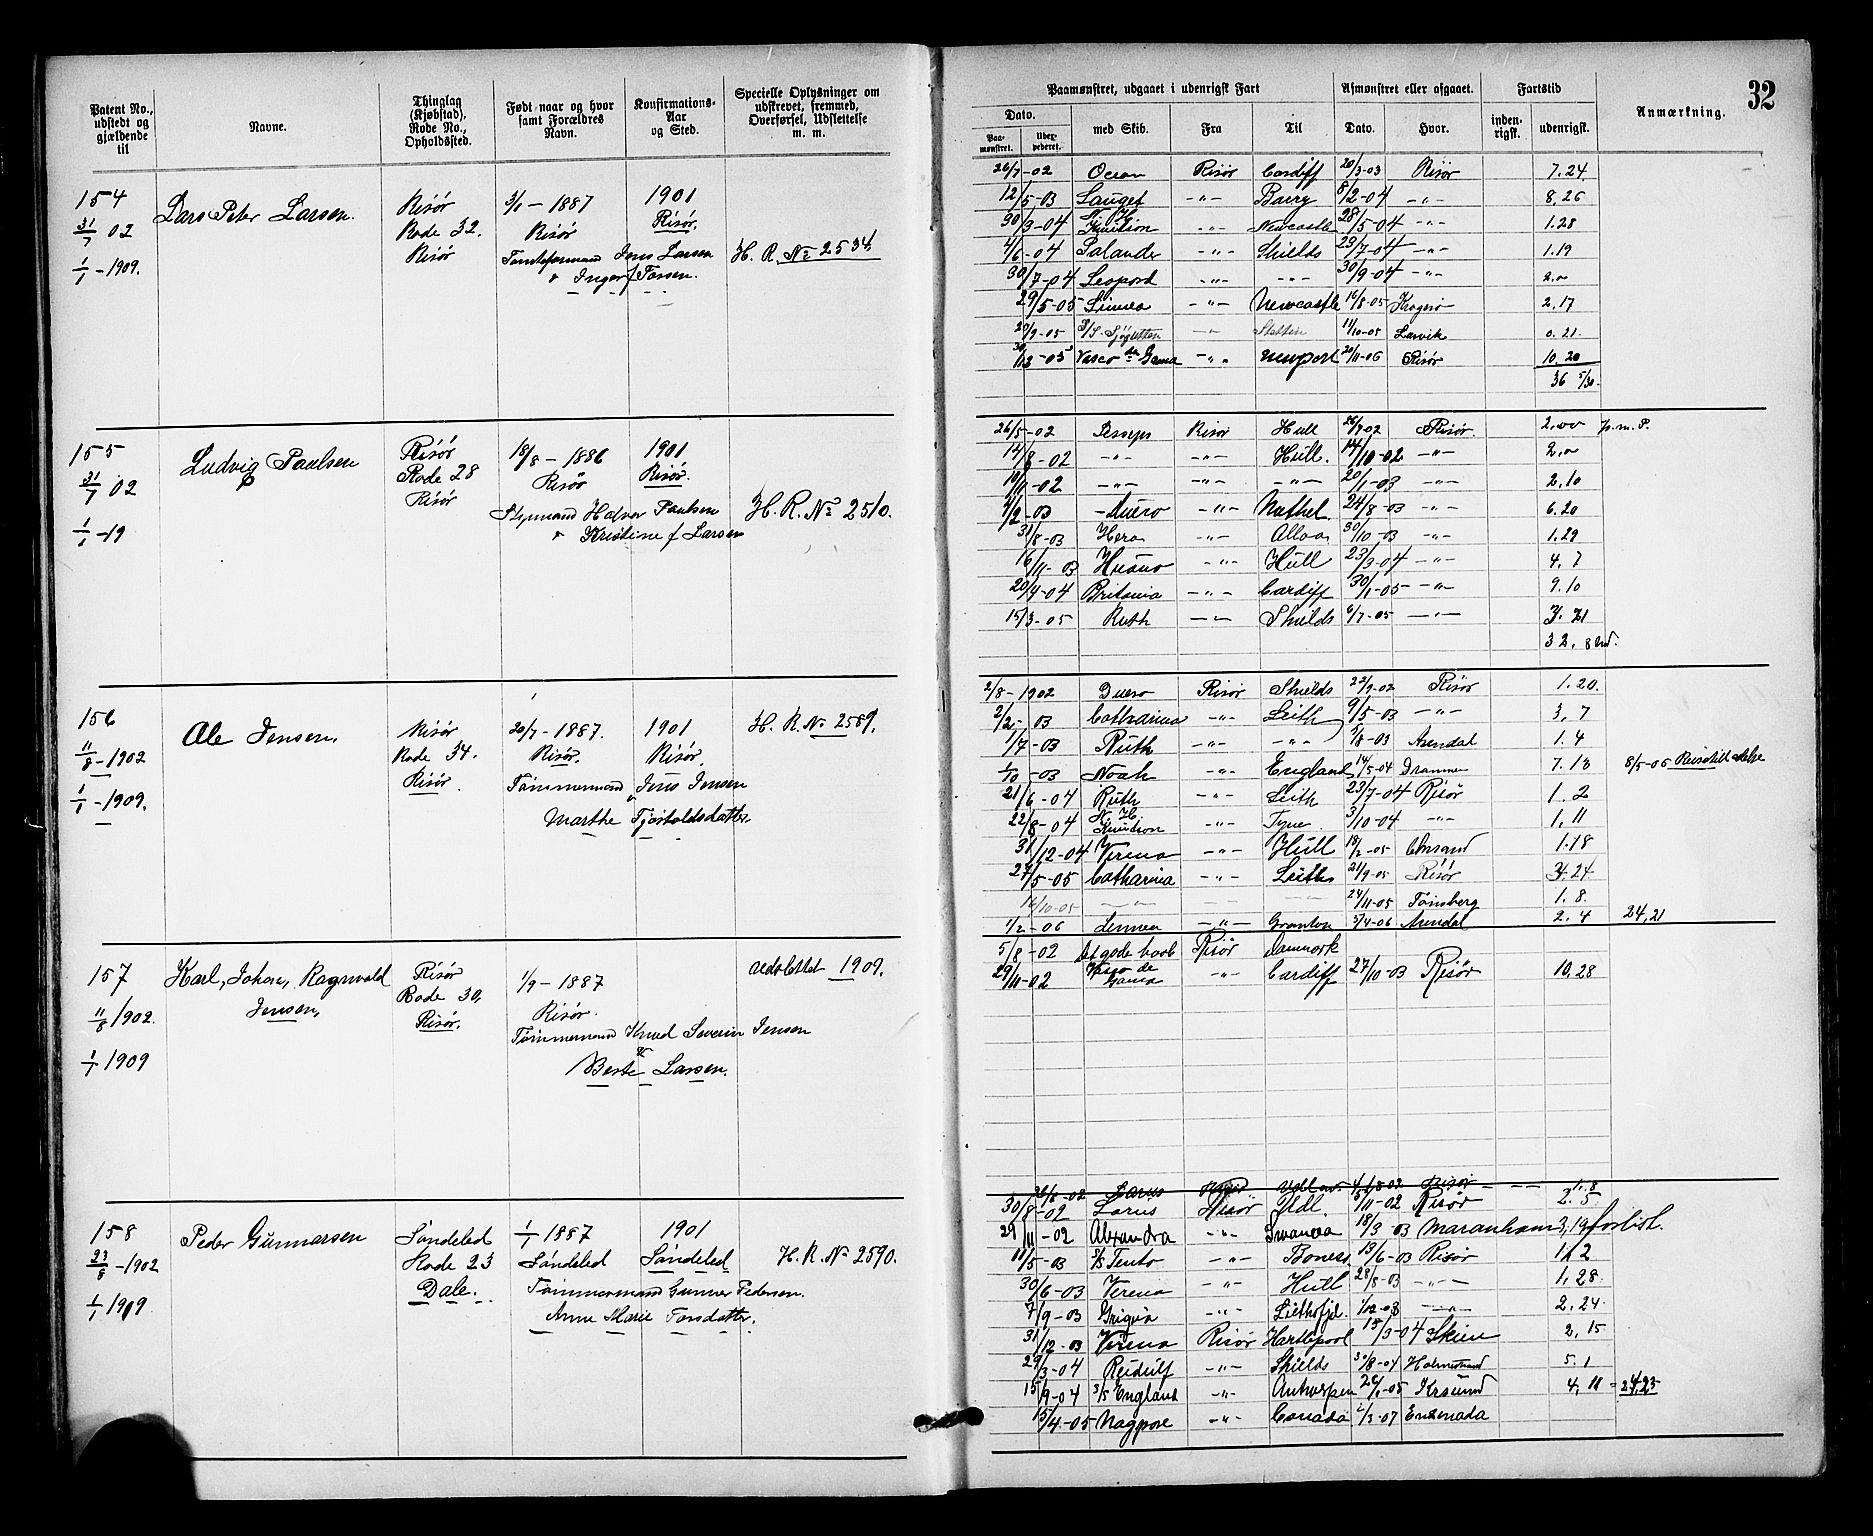 32
Patent No., udstedt og gjældende til
Navne.
Thinglag (Kjøbstad), Rode No., Opholdssted.
Født naar og hvor samt Forældres Navn.
Konfirmations-Aar og Sted.
Specielle Oplysninger om udskrevet, fremmed, Overførsel, Udslettelse m. m.
Paamønstret, udgaaet i udenrigsk Fart
Afmønstret eller afgaaet.
Fartstid
Anmærkning.
Dato.
Paa-mønstret.
Uder-pederet.
med Skib.
Fra
Til
Dato.
Hvor.
inden-rigsk.
udenrigsk.
154
31/7 02
1/1 - 1909.
Lars Peter Larsen.
Risør
Rode 32.
Risør
3/1 - 1887
Risør
Tomteformand Jens Larsen
Inger f. Tarsen.
1901
Risør.
H. R. No 2534
26/7-02 Ocean Risør Cardiff 20/3-03 Risør 7.24
12/5-03 Lauget -"- Barry 8/2-04 -"- 8.26
30/3-04 N. H. Knudson -"- Newcastle 28/5-04 -"- 1.28
4/6-04 Salander -"- Shields 23/7-04 -"- 1.19
30/7-04 Leopard -"- -"- 30/9-04 -"- 2.00
29/5-05 Linnea -"- Newcastle 16/8-05 Kragerø 2.17
20/9-05 S/S Stettin 11/10-05 Larvik 0.21.
30/12-05 Vasco de Gama -"- Newport 20/11-06 Risør 10.20
36 5/30.
155
31/7 02
1/1 -19
Ludvig Paulsen
Risør
Rode 28
Risør
18/8 - 1886
Risør
Styrmand Halvor Paulsen
Kristine f Larsen
1901
Risør.
H. R. No 2510.
26/5-02 Lesseps Risør Hull 26/7-02 Risør. 2.00 p.m.P.
14/8-02 -"- -"- Hull. 14/10-02 -"- 2.00
10/11-02 -"- -"- -"- 20/1-03 -"- 2.10
4/2-03 -"- 24/8-03 -"- 6.20
31/8-03 Hera -"- Alloa 30/10-03 -"- 1.29
16/11-03 -"- Hull 23/3-04 -"- 4.7
20/4-04 Britania -"- Cardiff 30/1-05 -"- 9.10
15/3-05 Ruth -"- Shields 6/7-05 -"- 3.21
32.8
156
11/8-1902
1/1-1909.
Ole Jensen.
Risør
Rode 34.
Risør
20/7 - 1887.
Risør.
Tømmermand Jens Jensen
Marthe Tjøstoldsdatter.
1901
Risør.
H. R. No 2589.
2/8-1902 Duero Risør Shields 22/9-02 Risør 1.20.
2/2-03 Catharina -"- Leith 9/5-03 -"- 3.7
1/7-03 Ruth -"- -"- 5/8-03 Arendal 1.4
1/10-03 Noah -"- England 14/5-04 Drammen 7.13 8/5-06
21/6-04 Ruth -"- Leith 23/7-04 Risør 1.2
22/8-04 N. H. Knudson -"- Tyne 3/10-04 -"- 1.11
31/12-04 Verena -"- Hull 18/2-05 Chrsand 1.18
27/5-05 Catharina -"- Leith 21/9-05 Risør 3.24
16/10-05 24/11-05 Tønsberg 1.8.
1/2-06 Linnea -"- Granton 5/4-06 Arendal 2.4 24,21
157
11/8 1902.
1/1 1909
Karl, Johan, Ragnvald
Jensen,
Risør
Rode 30,
Risør.
1/9 - 1887
Risør.
Tømmermand Knud Severin Jensen
Berte Larsen.
Udslettet 1909.
5/8-02 Det gode haab Risør Danmark
29/11-02 Vasco de Gama -"- Cardiff 27/10-03 Risør 10.28
158
23/8-1902
1/1 1909
Peder Gunnarsen
Søndeled
Rode 23
Dale.
1/1 1887
Søndeled
Tømmermand Gunner Pedersen.
Anne Marie Torsdatter.
1901
Søndeled
H. R. No 2590.
26/8-02 Larus Risør 02 Risør 1.8
30/8-02 Larus Risør Udl. 5/11-02 Risør 2.5
29/11-02 Alexandra -"- Swansea 18/3 03 Maranham 3,19 forlist.
11/5-03 S/S Tento -"- Boness 13/6-03 Risør 1.2
30/6-03 Verena -"- Hull 28/8-03 -"- 1.28
7/9-03 -"- 1/12-03 -"- 2.24
31/12-03 Verena Risør Hartlepool 15/3-04 Skien 2.15
29/3-04 Reidulf -"- Shields 30/8-04 Holmestrand 5.1
15/9-04 S/S England -"- Antwerpen 26/1-05 Krsund 4,11 = 24,23
15/4-05 Nagpore -"- Canada 2/3-07 Ensenada